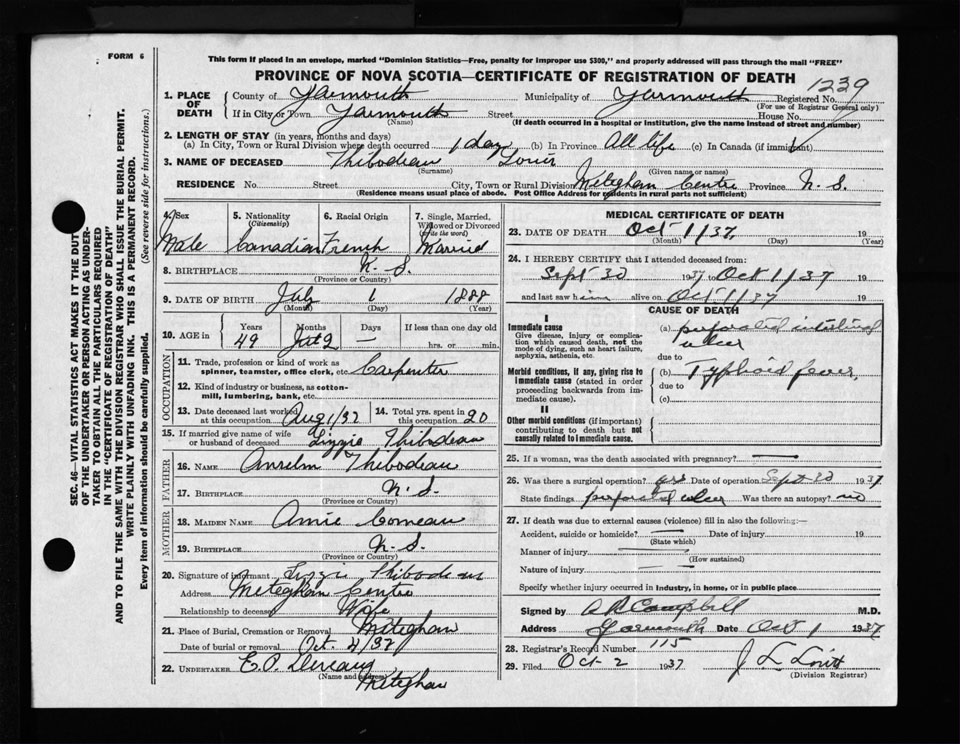 FORM 6
This form if placed in an envelope, marked "Dominion Statistics—Free, penalty for improper use $300," and properly addressed will pass through the mail "FREE"
PROVINCE OF NOVA SCOTIA—CERTIFICATE OF REGISTRATION OF DEATH
1239
1. PLACE OF DEATH County of Yarmouth Municipality of Yarmouth Registered No.
(For use of Registrar General only)
If in City or Town Yarmouth Street House No.
(Name) (If death occurred in a hospital or institution, give the name instead of street and number)
2. LENGTH OF STAY (in years, months and days)
(a) In City, Town or Rural Division where death occurred 1 day (b) In Province All life (c) In Canada (if immigrant)
3. NAME OF DECEASED Thibodeau Louis
(Surname) (Given name or names)
RESIDENCE No. Street City, Town or Rural Division Meteghan Centre Province N. S.
(Residence means usual place of abode. Post Office Address for residents in rural parts not sufficient)
4. Sex Male
5. Nationality (Citizenship) Canadian
6. Racial Origin French
7. Single, Married, Widowed or Divorced (write the word) Married
8. BIRTHPLACE N. S.
(Province or Country)
9. DATE OF BIRTH July 1 1888
(Month) (Day) (Year)
10. AGE in Years Months Days If less than one day old
49 2 — hrs. or min.
OCCUPATION
11. Trade, profession or kind of work as spinner, teamster, office clerk, etc. Carpenter
12. Kind of industry or business, as cotton-mill, lumbering, bank, etc.
13. Date deceased last worked at this occupation Aug 1/37
14. Total yrs. spent in this occupation 20
15. If married give name of wife or husband of deceased Lizzie Thibodeau
FATHER
16. NAME Anselm Thibodeau
17. BIRTHPLACE N. S.
(Province or Country)
MOTHER
18. MAIDEN NAME Annie Comeau
19. BIRTHPLACE N. S.
(Province or Country)
20. Signature of informant Lizzie Thibodeau
Address Meteghan Centre
Relationship to deceased Wife
21. Place of Burial, Cremation or Removal Meteghan
Date of burial or removal Oct. 4/37
22. UNDERTAKER E. P.
(Name and address) Meteghan
MEDICAL CERTIFICATE OF DEATH
23. DATE OF DEATH Oct 1/37 19
(Month) (Day) (Year)
24. I HEREBY CERTIFY that I attended deceased from:
Sept 30 1937 to Oct 1/37 19
and last saw him alive on Oct 1/37 19
CAUSE OF DEATH
I
Immediate cause
Give disease, injury or complication which caused death, not the mode of dying, such as heart failure, asphyxia, asthenia, etc.
(a) perforated intestinal ulcer
due to
Morbid conditions, if any, giving rise to immediate cause (stated in order proceeding backwards from immediate cause).
(b) Typhoid fever
due to
(c)
II
Other morbid conditions (if important) contributing to death but not causally related to immediate cause.
25. If a woman, was the death associated with pregnancy? —
26. Was there a surgical operation? yes Date of operation Sept 30 1937
State findings perforated ulcer Was there an autopsy? no
27. If death was due to external causes (violence) fill in also the following:—
Accident, suicide or homicide? — Date of injury 19
(State which)
Manner of injury —
(How sustained)
Nature of injury —
Specify whether injury occurred in industry, in home, or in public place.
Signed by A R Campbell M.D.
Address Yarmouth Date Oct 1 1937
28. Registrar's Record Number 115
29. Filed Oct 2 1937 J L
(Division Registrar)
SEC. 46—VITAL STATISTICS ACT MAKES IT THE DUTY
OF THE UNDERTAKER OR PERSON ACTING AS UNDER-
TAKER TO OBTAIN ALL THE PARTICULARS REQUIRED
IN THE "CERTIFICATE OF REGISTRATION OF DEATH"
AND TO FILE THE SAME WITH THE DIVISION REGISTRAR WHO SHALL ISSUE THE BURIAL PERMIT.
WRITE PLAINLY WITH UNFADING INK. THIS IS A PERMANENT RECORD.
Every item of information should be carefully supplied. (See reverse side for instructions.)